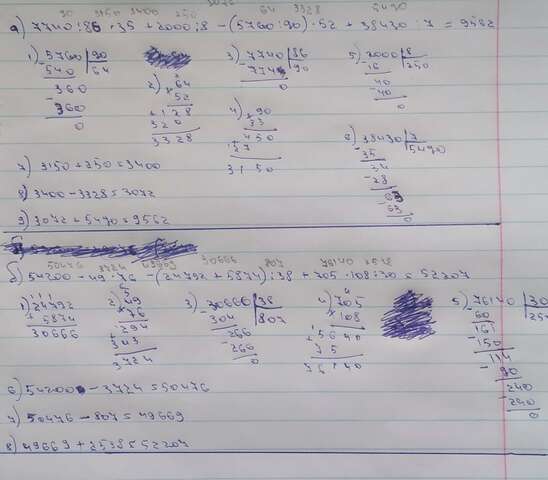 90 3150 3400 250 3072 64 3328 5490
а) 7740:86 · 35 + 2000:8 - (5760:90) · 52 + 38430 : 7 = 9562
1) 5760 | 90
- 540 | 64
360
- 360
0
2) 64
52
+ 128
320
3328
3) 7740 | 86
- 774 | 90
0
4) 90
450
27
3150
5) 2000 | 8
- 16 | 250
40
- 40
0
6) 38430 | 7
- 35 | 5490
34
- 28
63
- 63
0
7) 3150 + 250 = 3400
8) 3400 - 3328 = 3072
9) 3072 + 5490 = 9562
50476 3724 49669 30666 807 76140 2538
б) 54200 - 49 · 76 - (24792 + 5874) : 38 + 705 · 108 : 30 = 52207
1) 24792
+ 5874
30666
2) 49
76
+ 294
343
3724
3) 30666 | 38
- 304 | 807
266
- 266
0
4) 705
108
+ 5640
705
76140
5) 76140 | 30
- 60
161
- 150
114
- 90
240
- 240
0
6) 54200 - 3724 = 50476
7) 50476 - 807 = 49669
8) 49669 + 2538 = 52207